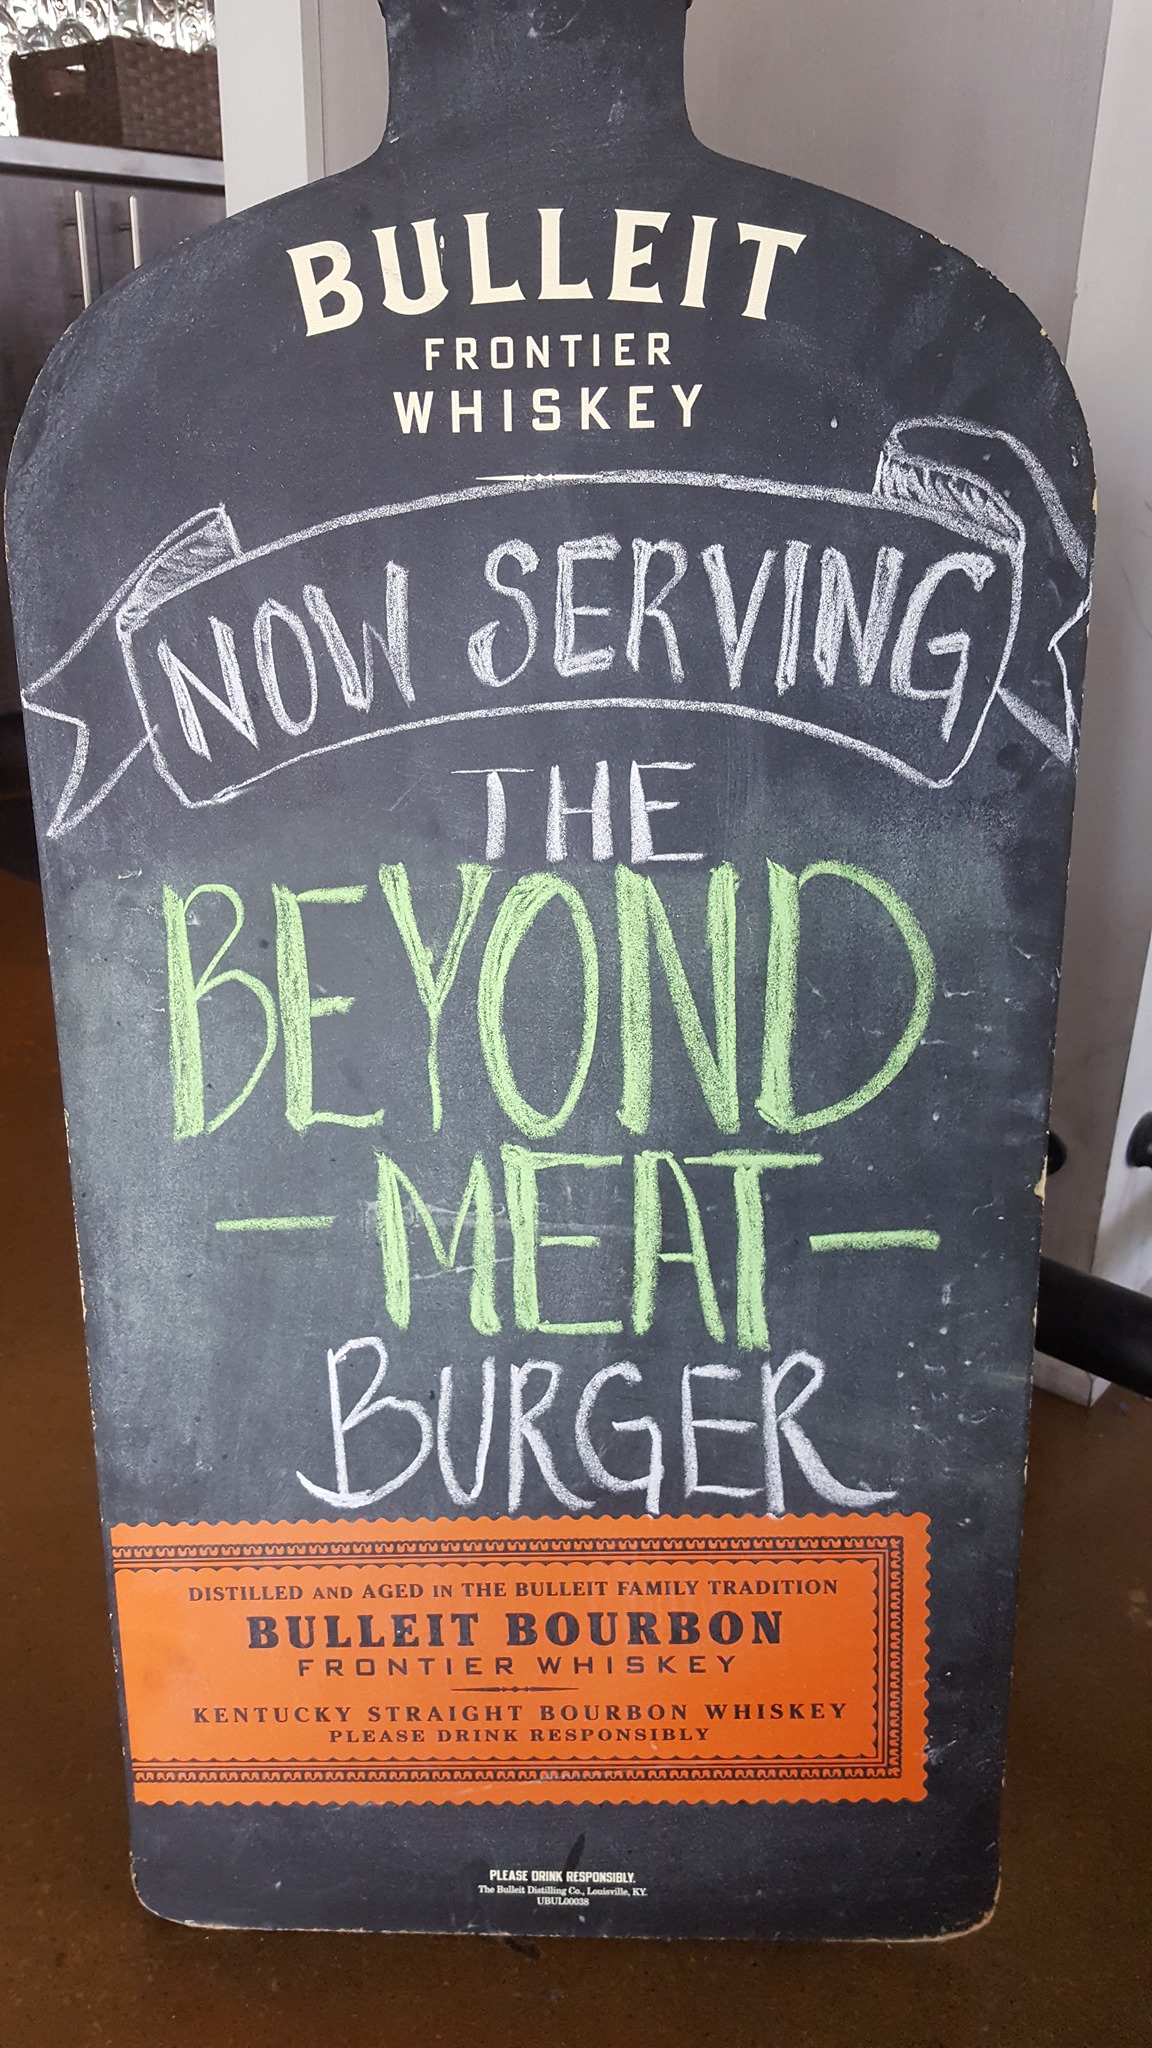 BULLEIT
FRONTIER
WHISKEY
NOW SERVING
THE
BEYOND
- MEAT -
BURGER
DISTILLED AND AGED IN THE BULLEIT FAMILY TRADITION
BULLEIT BOURBON
FRONTIER WHISKEY
KENTUCKY STRAIGHT BOURBON WHISKEY
PLEASE DRINK RESPONSIBLY
PLEASE DRINK RESPONSIBLY.
The Bulleit Distilling Co., Louisville, KY.
UBUL00038